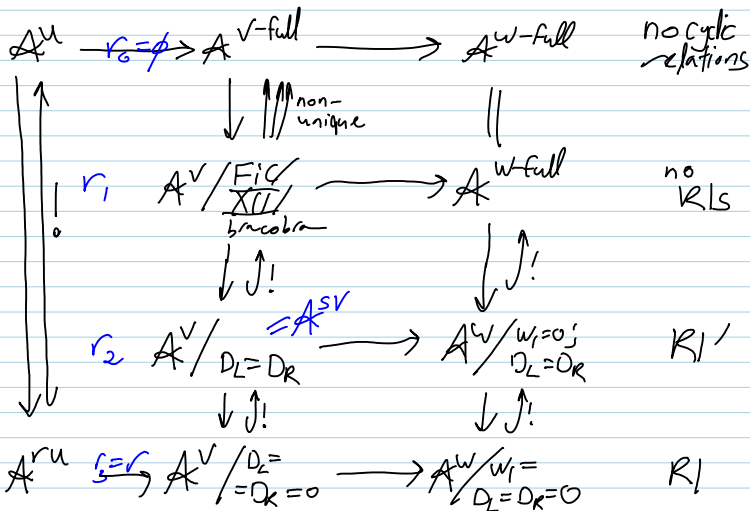 𝒜^u r_0=φ 𝒜^{v-full} 𝒜^{w-full} no cyclic relations
non-unique
! r_1 𝒜^v/ FiC/ XCI/ bracobra 𝒜^{w-full} no RIs
! !
r_2 𝒜^v/D_L=D_R =𝒜^{sv} 𝒜^w/w_1=0; D_L=D_R RI'
! !
𝒜^{ru} r_3=r 𝒜^v/D_L= =D_R=0 𝒜^w/w_1= D_L=D_R=0 RI